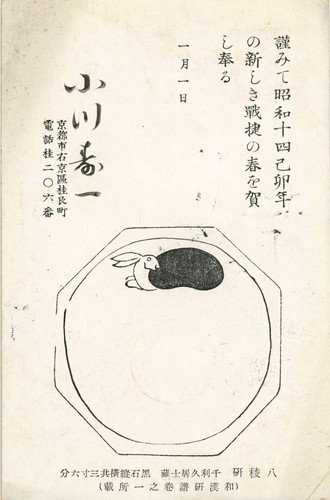 謹みて昭和十四己卯年
の新しき戰捷の春を賀
し奉る
一月一日
小川寿一
京都市右京區桂良町
電話桂二〇六番
八稜硏 千利久居士藏 黑石縱横共三寸六分
(和漢硏譜卷之一所載)